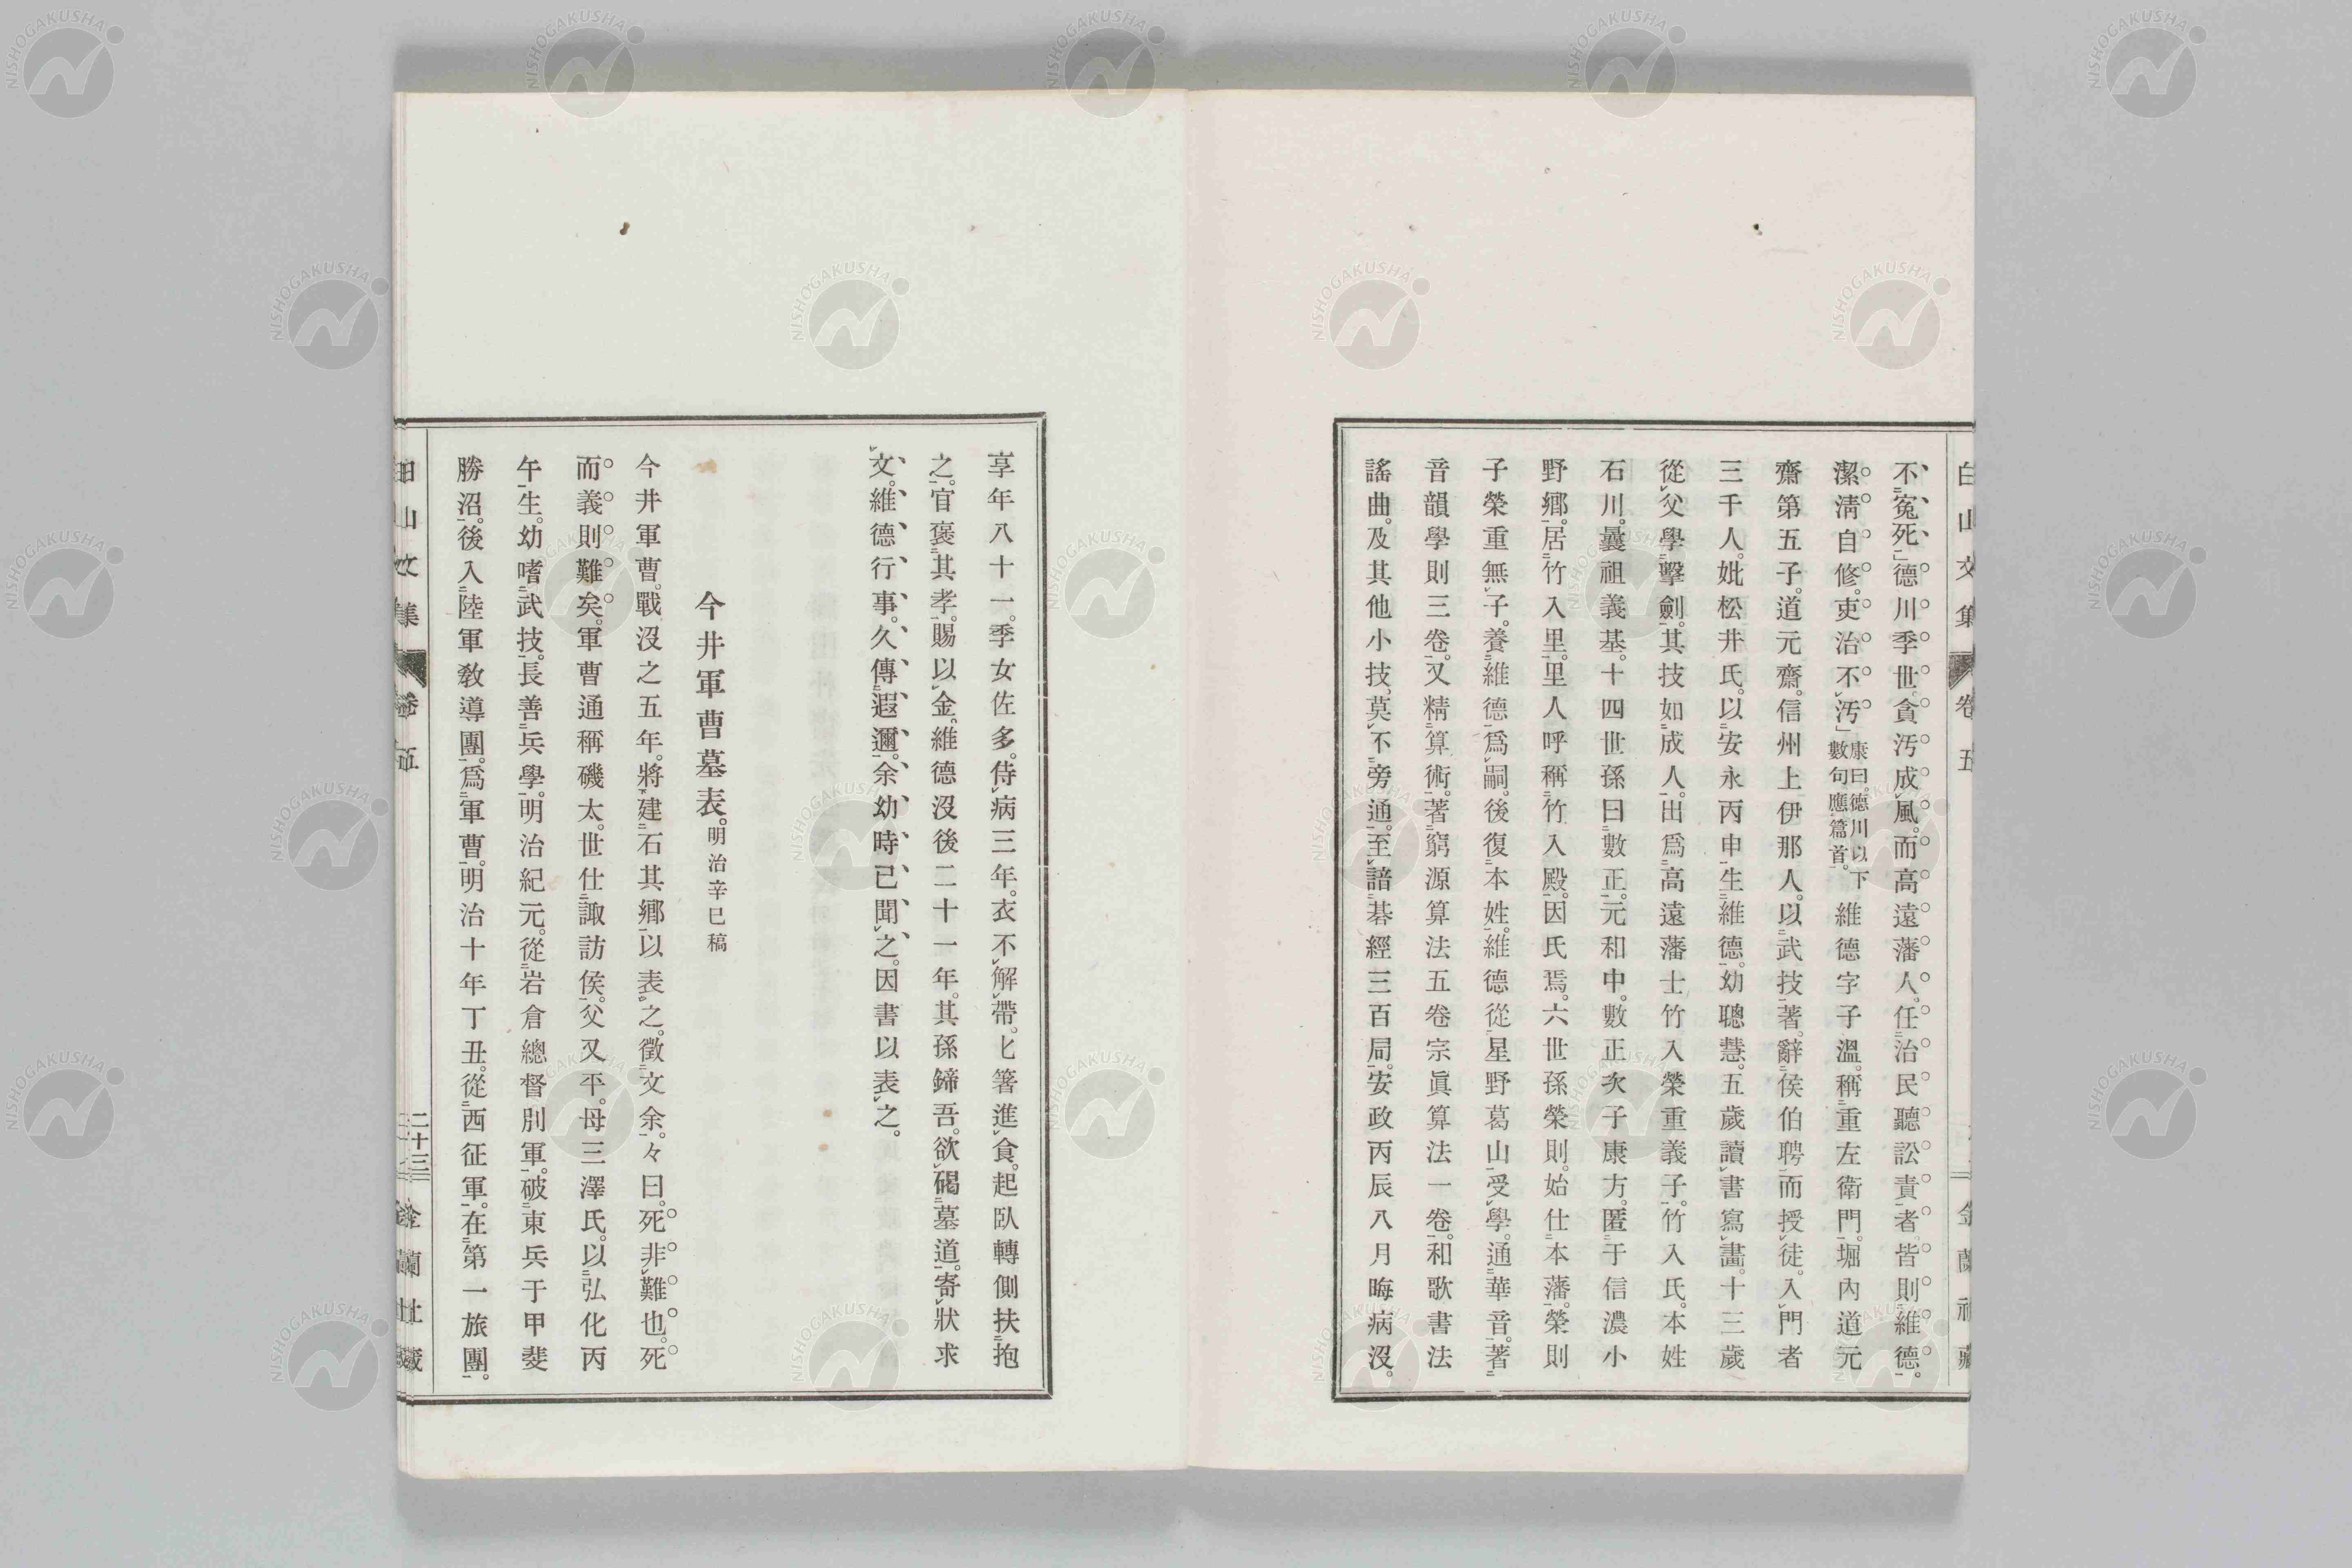 白山文集 卷五
不冤死」德川季世。貪汚成風。而高遠藩人。任治民聽訟責者。皆則維德。
潔淸自修。吏治不汚」康曰。德川以下數句。應篇首。維德字子溫。稱重左衛門。堀內道元
齋第五子。道元齋。信州上伊那人。以武技著。辭侯伯聘而授徒。入門者
三千人。妣松井氏。以安永丙申生維德。幼聰慧。五歲讀書寫畫。十三歲
從父學擊劍。其技如成人。出爲高遠藩士竹入榮重義子。竹入氏。本姓
石川。曩祖義基。十四世孫曰數正。元和中。數正次子康方。匿于信濃小
野鄉。居竹入里。里人呼稱竹入殿。因氏焉。六世孫榮則。始仕本藩。榮則
子榮重無子。養維德爲嗣。後復本姓。維德從星野葛山受學。通華音。著
音韻學則三卷。又精算術。著窮源算法五卷宗眞算法一卷。和歌書法
謠曲。及其他小技。莫不旁通。至諳碁經三百局。安政丙辰八月晦病沒。
享年八十一。季女佐多。侍病三年。衣不解帶。匕箸進食。起臥轉側扶抱
之。官褒其孝。賜以金。維德沒後二十一年。其孫鍗吾。欲碣墓道。寄狀求
文。維德行事。久傳遐邇。余幼時已聞之。因書以表之。
今井軍曹墓表。明治辛巳稿
今井軍曹。戰沒之五年。將建石其鄉以表之。徵文余。々曰。死非難也。死
而義則難矣。軍曹通稱磯太。世仕諏訪侯。父又平。母三澤氏。以弘化丙
午生。幼嗜武技。長善兵學。明治紀元。從岩倉總督別軍。破東兵于甲斐
勝沼。後入陸軍敎導團。爲軍曹。明治十年丁丑。從西征軍。在第一旅團。
卷五 二十三